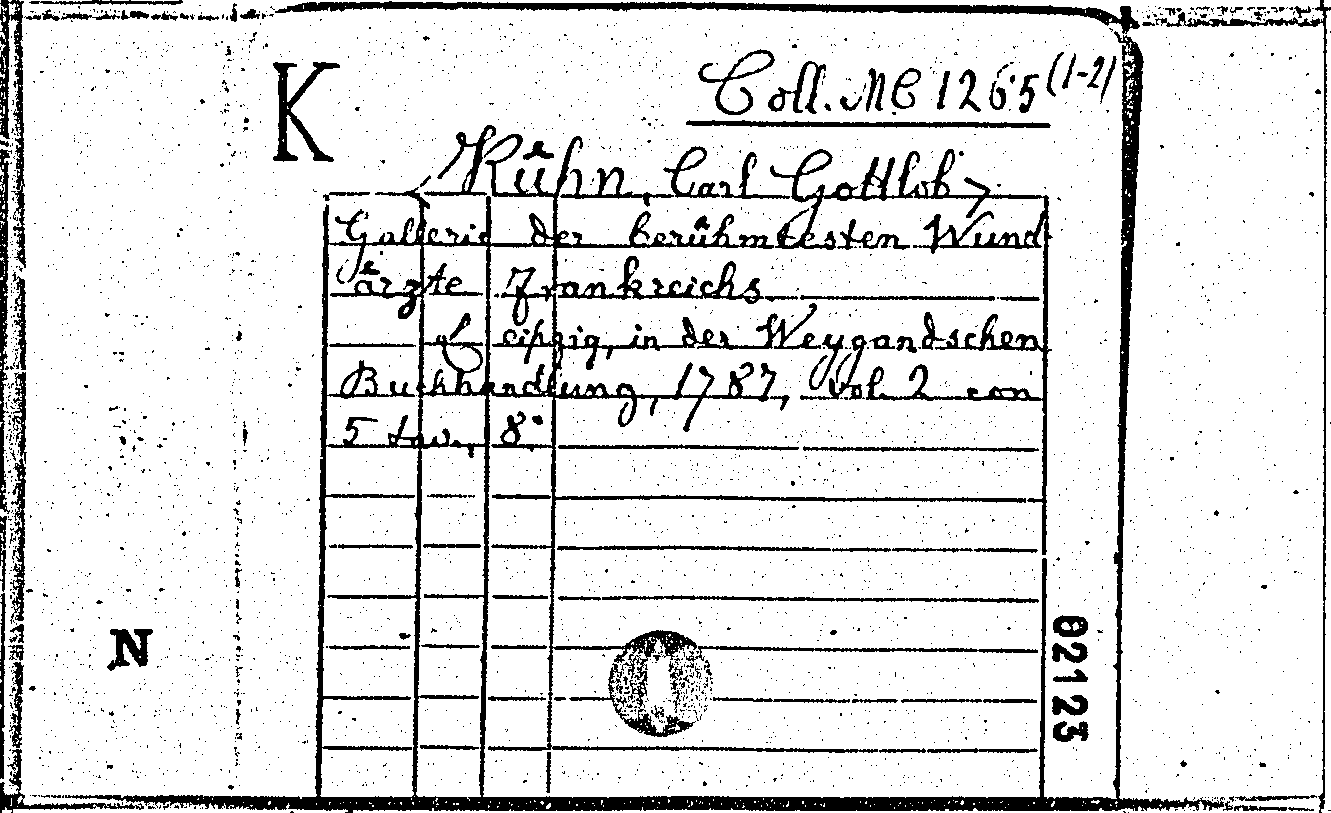 K
Coll. MC 1265 (1-2)
<Kühn, Carl Gottlob>
Gallerie der berühmtesten Wund
ärzte Frankreichs
Leipzig, in der Weygandschen
Buchhandlung, 1787, vol. 2 con
5 tav., 8°
N
02123